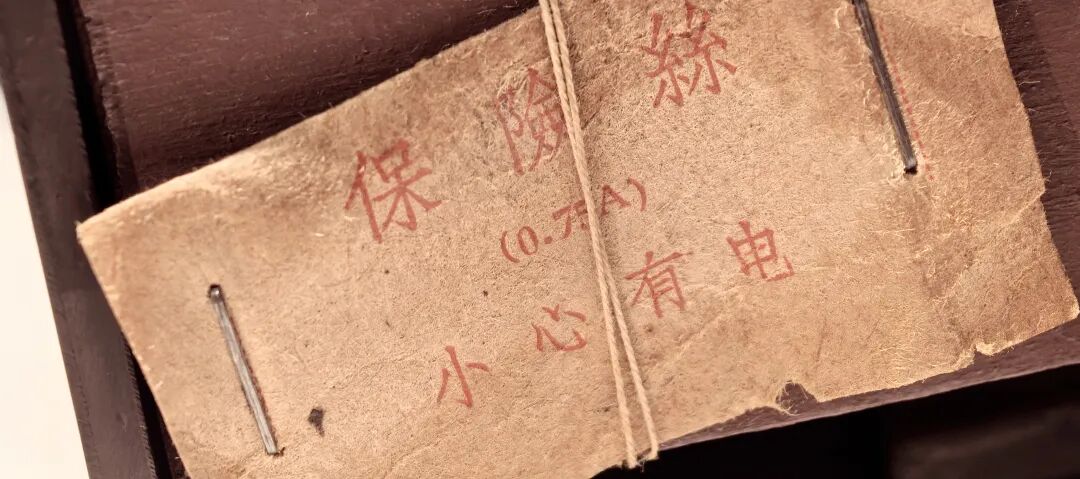 保險絲
(0.75A)
小心有电